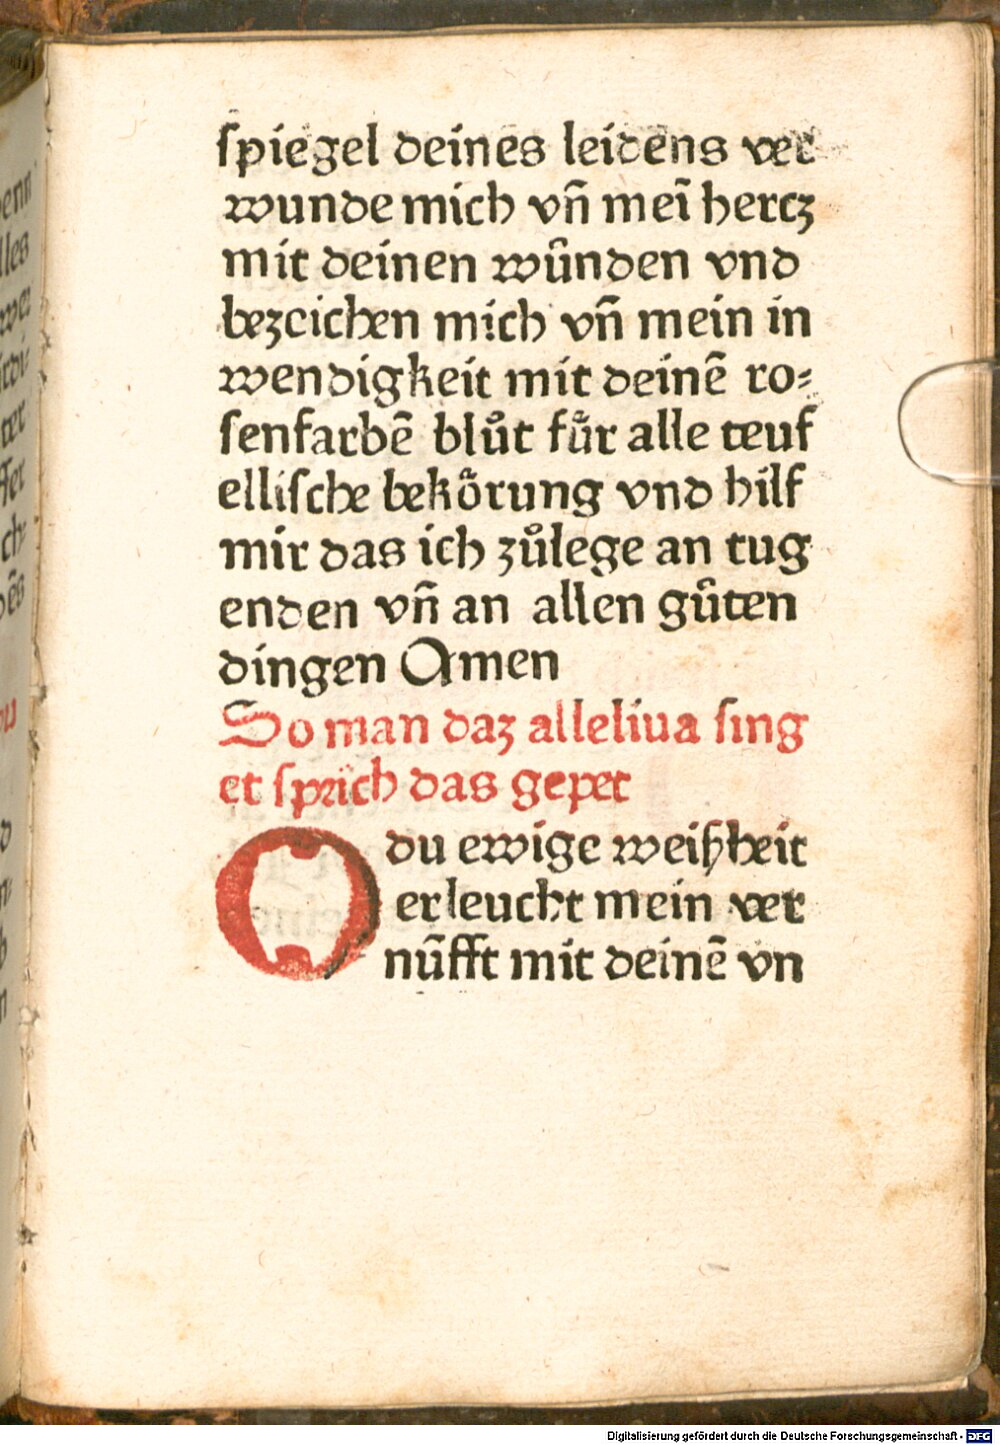 ſpiegel deines leidens ver
wunde mich vñ meī hercz
mit deinen wūnden vnd
bezeichen mich vñ mein in
wendigkeit mit deinē ro⸗
ſenfarbē blůt fuͤr alle teuf
elliſche bekoͤrung vnd hilf
mir das ich zůlege an tug
enden vñ an allen gůten
dingen Amen
So man daz alleliua ſing
et ſprich das gepet
O du ewige weiſzheit
erleucht mein ver
nūfft mit deinē vn
Digitalisierung gefördert durch die Deutsche Forschungsgemeinschaft - DFG